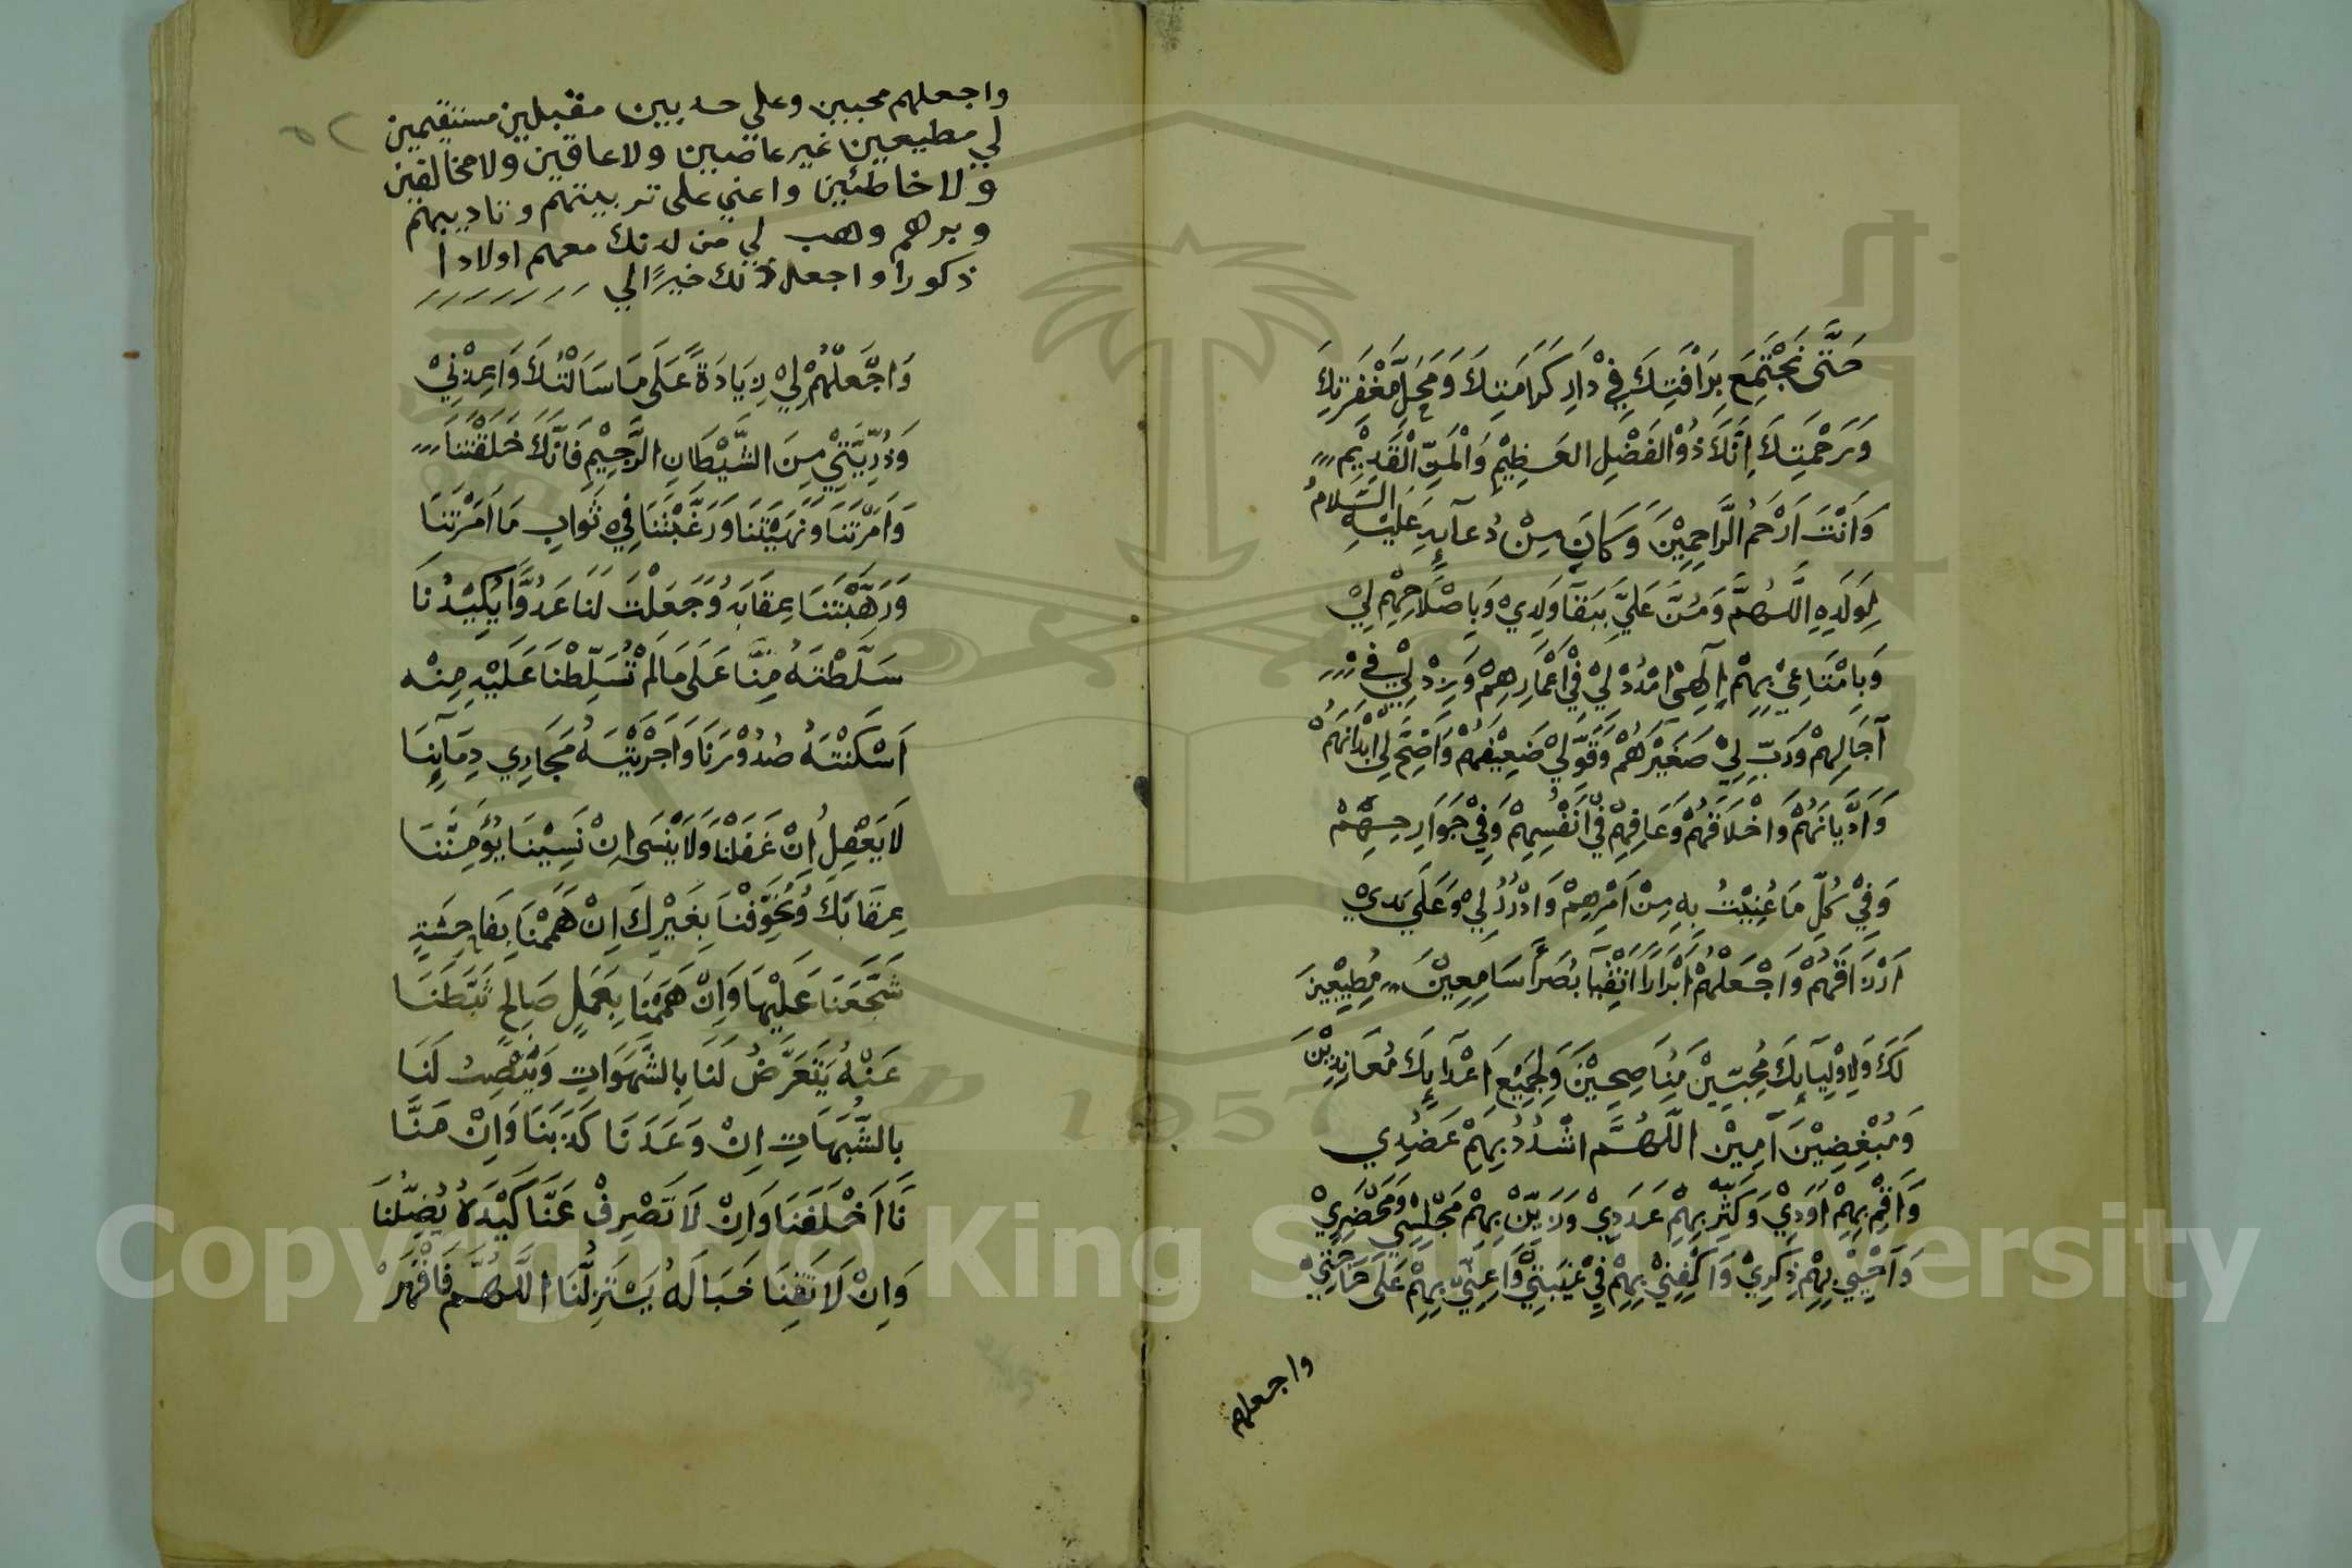 حَتَّى نَجْتَمِعَ بِرَأْفَتِكَ فِيْ دَارِ كَرَامَتِكَ وَمَحَلِّ مَغْفِرَتِكَ
وَرَحْمَتِكَ اِنَّكَ ذُوْالْفَضْلِ الْعَظِيْمِ وَالْمَنِّ الْقَدِيْمِ
وَاَنْتَ اَرْحَمُ الرَّاحِمِيْنَ وَكَانَ مِنْ دُعَآئِهِ عَلَيْهِ السَّلَامُ
لِوَلَدِهِ اللّهُمَّ وَمُنَّ عَلَيَّ بِبَقَآ وَلَدِيْ وَبِاِصْلَاحِهِمْ لِيْ
وَبِاِمْتَاعِيْ بِهِمْ اِلَهِيْ امْدُدْ لِيْ فِيْ اَعْمَارِهِمْ وَزِدْ لِيْ فِيْ
آجَالِهِمْ وَرَبِّ لِيْ صَغِيْرَهُمْ وَقَوِّ لِيْ ضَعِيْفَهُمْ وَاَصِحَّ لِيْ اَبْدَانَهُمْ
وَاَدْيَانَهُمْ وَاَخْلَاقَهُمْ وَعَافِهِمْ فِيْ اَنْفُسِهِمْ وَفِيْ جَوَارِحِهِمْ
وَفِيْ كُلِّ مَا عُنِيْتُ بِهِ مِنْ اَمْرِهِمْ وَادْرُرْ لِيْ وَعَلَى يَدِيْ
اَرْزَاقَهُمْ وَاجْعَلْهُمْ اَبْرَارًا اَتْقِيَآ بُصَرَآ سَامِعِيْنَ مُطِيْعِيْنَ
لَكَ وَلِاَوْلِيَآئِكَ مُحِبِّيْنَ مُنَاصِحِيْنَ وَلِجَمِيْعِ اَعْدَآئِكَ مُعَانِدِيْنَ
وَمُبْغِضِيْنَ آمِيْنْ اللّهُمَّ اشْدُدْ بِهِمْ عَضُدِي
وَاَقِمْ بِهِمْ اَوَدِيْ وَكَثِّرْ بِهِمْ عَدَدِيْ وَزَيِّنْ بِهِمْ مَجْلِسِيْ وَمَحْضَرِيْ
وَاَحْيِيْ بِهِمْ ذِكْرِيْ وَاكْفِنِيْ بِهِمْ فِيْ غَيْبَتِيْ وَاَعِنِّيْ بِهِمْ عَلَى حَاجَتِيْ
واجعلهم
واجعلهم محبين وعلي حدبين مقبلين مستقيمين
لي مطيعين غير عاصين ولا عاقين ولا مخالفين
ولا خاطئين واعني على تربيتهم وتاديبهم
وبرهم وهب لي من لدنك معهم اولادا
ذكورا واجعل ذلك خيرًا لي
وَاجْعَلْهُمْ لِيْ زِيَادَةً عَلَى مَا سَاَلْتُكَ وَاَعِذْنِيْ
وَذُرِّيَّتِيْ مِنَ الشَّيْطَانِ الرَّجِيْمِ فَاِنَّكَ خَلَقْتَنَا
وَاَمَرْتَنَا وَنَهَيْتَنَا وَرَغَّبْتَنَا فِي ثَوَابِ مَا اَمَرْتَنَا
وَرَهَّبْتَنَا عِقَابَهُ وَجَعَلْتَ لَنَا عَدُوًّا يَكِيْدُنَا
سَلَّطْتَهُ مِنَّا عَلَى مَا لَمْ تُسَلِّطْنَا عَلَيْهِ مِنْه
اَسْكَنْتَهُ صُدُوْرَنَا وَاَجْرَيْتَهُ مَجَارِي دِمَآئِنَا
لَا يَغْفِلُ اِنْ غَفَلْنَا وَلَا يَنْسَى اِنْ نَسِيْنَا يُؤْمِنُنَا
عِقَابَكَ وَيُخَوِّفُنَا بِغَيْرِكَ اِنْ هَمَمْنَا بِفَاحِشَةٍ
شَجَّعَنَا عَلَيْهَا وَاِنْ هَمَمْنَا بِعَمَلٍ صَالِحٍ ثَبَّطَنَا
عَنْهُ يَتَعَرَّضُ لَنَا بِالشَّهَوَاتِ وَيَنْصِبُ لَنَا
بِالشُّبَهَاتِ اِنْ وَعَدَنَا كَذَبَنَا وَاِنْ مَنَّا
نَا اَخْلَفَنَا وَاِنْ لَا تَصْرِفْ عَنَّا كَيْدَهُ يُضِلُّنَا
وَاِنْ لَا تَقِنَا خَبَالَهُ يَسْتَزِلُّنَا اللّهُمَّ فَاقْهَرْ
Copyright © King Saud University
1957